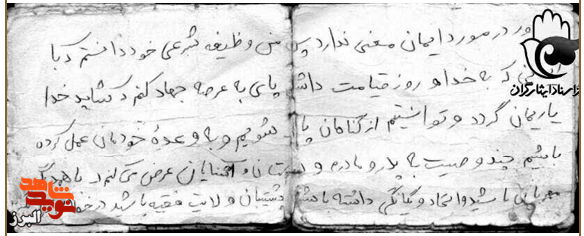 در مورد ایمان معنی ندارد پس من وظیفه شرعی خود دانستم که با
که به خدا و روز قیامت داشتم پای به عرصه جهاد کنم که شاید خدا
یاریمان گردد و توانستیم از گناهان پاک شویم و به وعدهٔ خودمان عمل کرده
باشیم چند وصیت به پدر و مادرم و دوستان و آشنایان عرض می‌کنم با همدیگر
مهربان باشید و اتحاد و یگانگی داشته باشید پشتیبان ولایت فقیه باشید
اسناد ایثارگران
شاهد
نوید
البرز